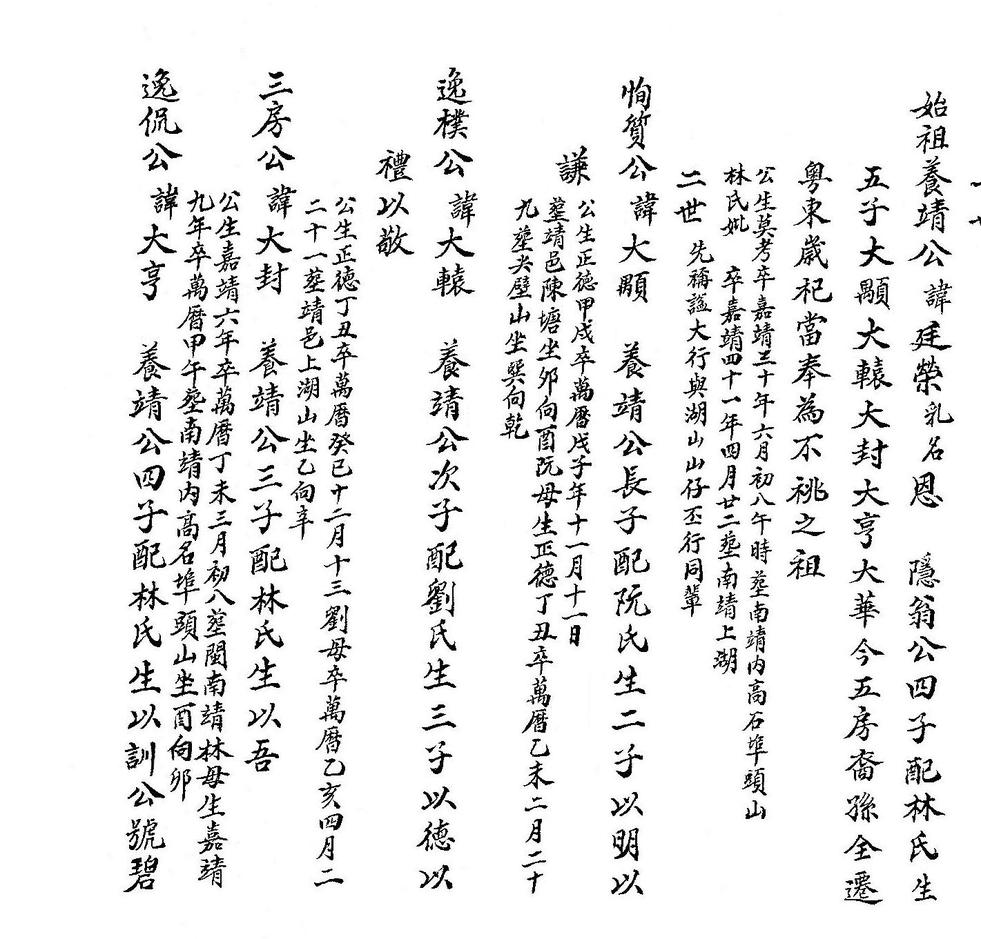 始祖養靖公 諱廷榮乳名恩 隱翁公四子配林氏生
五子大顒大轅大封大亨大華今五房裔孫全遷
粵東歲祀當奉為不祧之祖
公生莫考卒嘉靖三十年六月初八午時塟南靖內高石埠頭山
林氏妣 卒嘉靖四十一年四月廿二塟南靖上湖
二世 先稱謚大行與湖山山仔丕行同輩
恂質公 諱大顒 養靖公長子配阮氏生二子以明以
謙
公生正德甲戌卒萬曆戊子年十一月十一日
塟靖邑陳塘坐卯向酉阮母生正德丁丑卒萬曆乙未二月二十
九塟尖壁山坐巽向乾
逸樸公 諱大轅 養靖公次子配劉氏生三子以德以
禮以敬
公生正德丁丑卒萬曆癸巳十二月十三劉母卒萬曆乙亥四月二
二十一塟靖邑上湖山坐乙向辛
三房公 諱大封 養靖公三子配林氏生以吾
公生嘉靖六年卒萬曆丁未三月初八塟閩南靖林母生嘉靖
九年卒萬曆甲午塟南靖內高名埠頭山坐酉向卯
逸侃公 諱大亨 養靖公四子配林氏生以訓公號碧